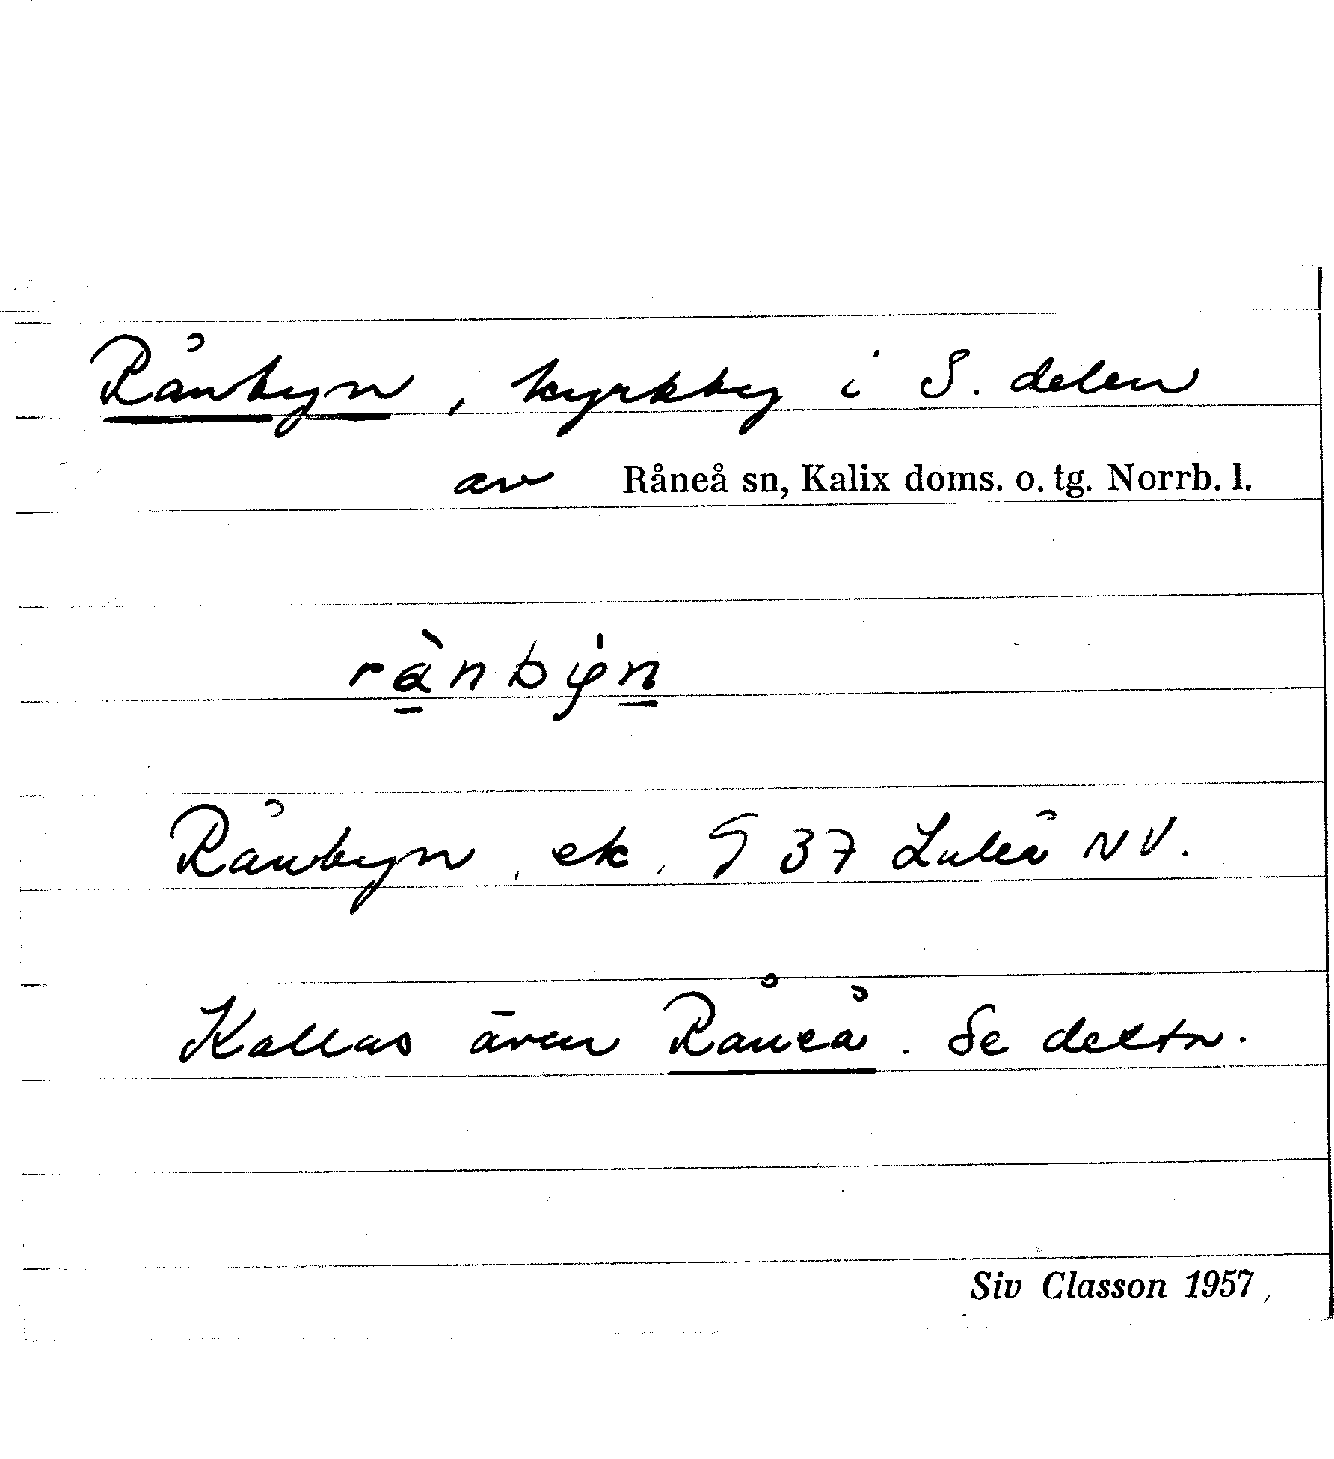 Rånbyn, kyrkby i S. delen
av Råneå sn, Kalix doms. o. tg. Norrb. l.
rànbyn
Rånbyn, ek, G 37 Luleå NV.
Kallas även Råneå. Se detta.
Siv Classon 1957